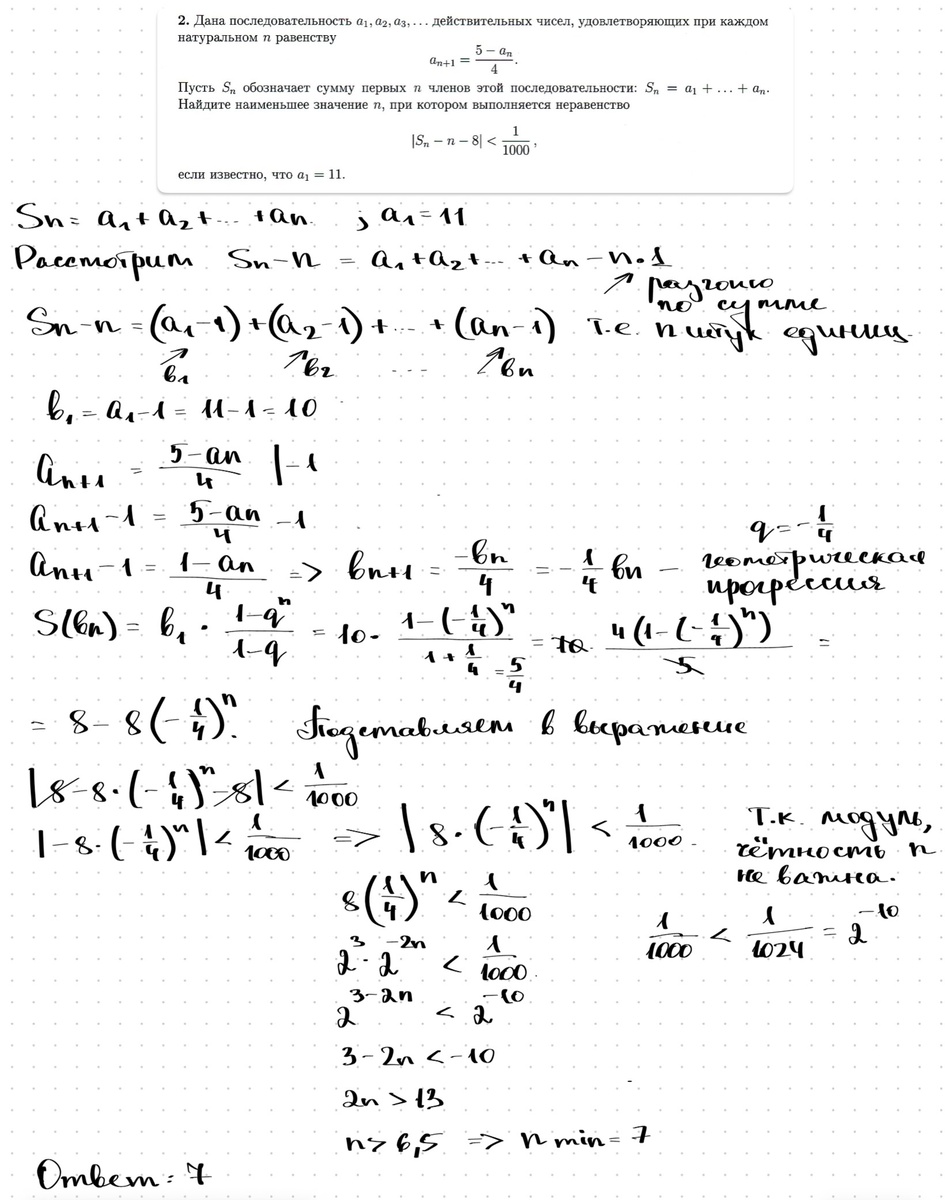 2. Дана последовательность a₁, a₂, a₃, … действительных чисел, удовлетворяющих при каждом
натуральном n равенству
aₙ₊₁ = (5 − aₙ)/4.
Пусть Sₙ обозначает сумму первых n членов этой последовательности: Sₙ = a₁ + … + aₙ.
Найдите наименьшее значение n, при котором выполняется неравенство
|Sₙ − n − 8| < 1/1000,
если известно, что a₁ = 11.
Sn = a₁ + a₂ + … + an. ; a₁ = 11
Рассмотрим Sn − n = a₁ + a₂ + … + an − n·1
↗ разгоню
по сумме
Sn − n = (a₁ − 1) + (a₂ − 1) + … + (an − 1) т.е. n штук единиц
b₁ b₂ … bn
b₁ = a₁ − 1 = 11 − 1 = 10
an+1 = (5 − an)/4 | −1
an+1 − 1 = (5 − an)/4 − 1
q = −1/4
an+1 − 1 = (1 − an)/4 => bn+1 = −bn/4 = −1/4 bn − геометрическая
прогрессия
S(bn) = b₁ · (1 − qⁿ)/(1 − q) = 10 · (1 − (−1/4)ⁿ)/(1 + 1/4 = 5/4) = 10 · 4(1 − (−1/4)ⁿ)/5 =
= 8 − 8(−1/4)ⁿ. Подставляем в выражение
|8 − 8·(−1/4)ⁿ − 8| < 1/1000
|−8·(−1/4)ⁿ| < 1/1000 => |8·(−1/4)ⁿ| < 1/1000. Т.к. модуль,
чётность n
не важна.
8(1/4)ⁿ < 1/1000
1/1000 < 1/1024 = 2⁻¹⁰
2³·2⁻²ⁿ < 1/1000.
2³⁻²ⁿ < 2⁻¹⁰
3 − 2n < −10
2n > 13
n > 6,5 => n min = 7
Ответ: 7